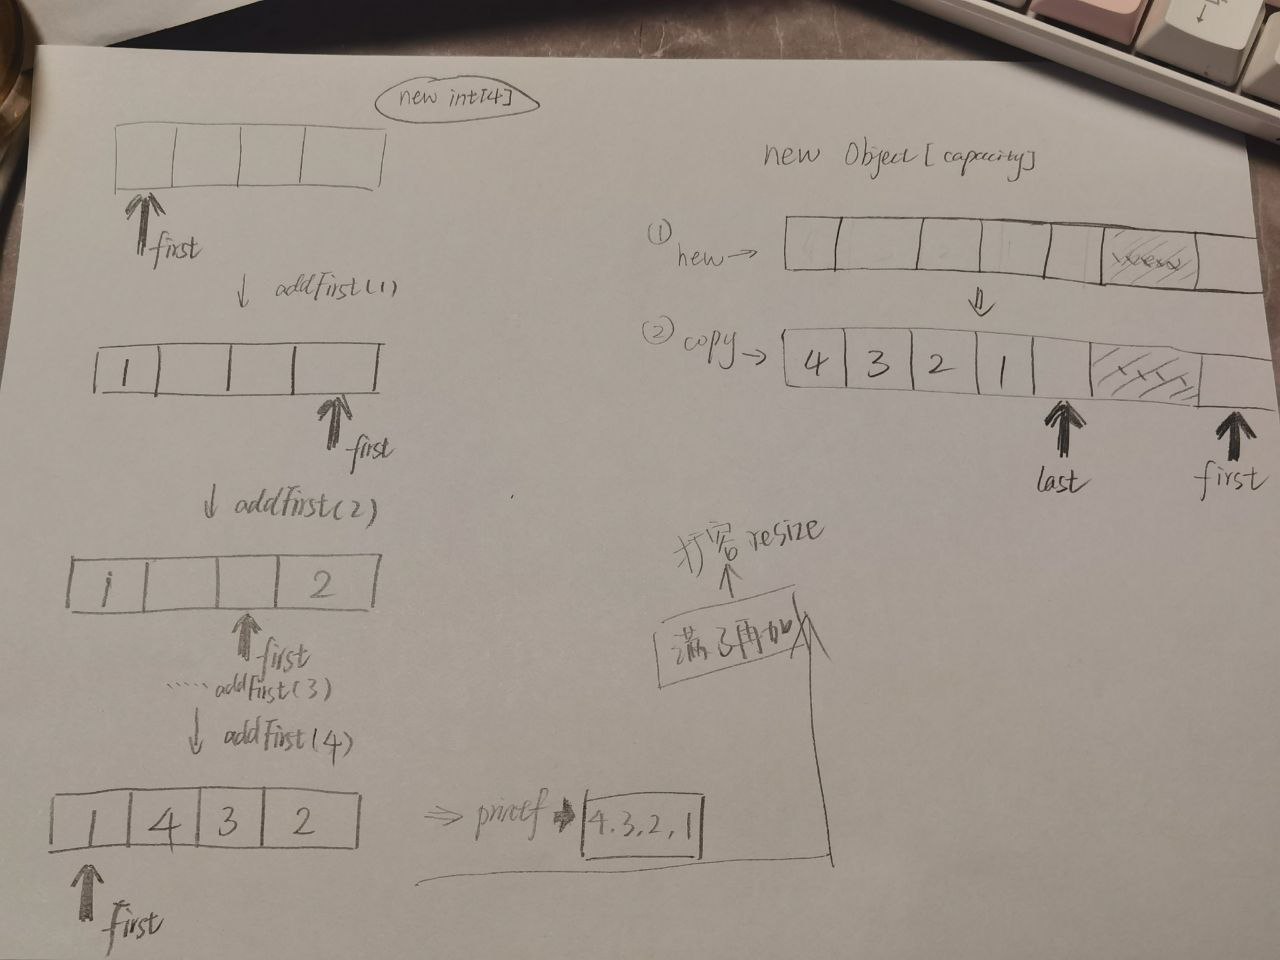 new int[4]
first
↓ addFirst(1)
1
first
↓ addFirst(2)
1 2
first
...... addFirst(3)
↓ addFirst(4)
1 4 3 2
first
⇒ printf → 4.3.2,1
满了再加
扩容 resize
new Object[capacity]
① new →
② copy → 4 3 2 1
last
first